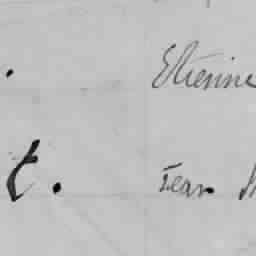 . Etienne
t. Jean